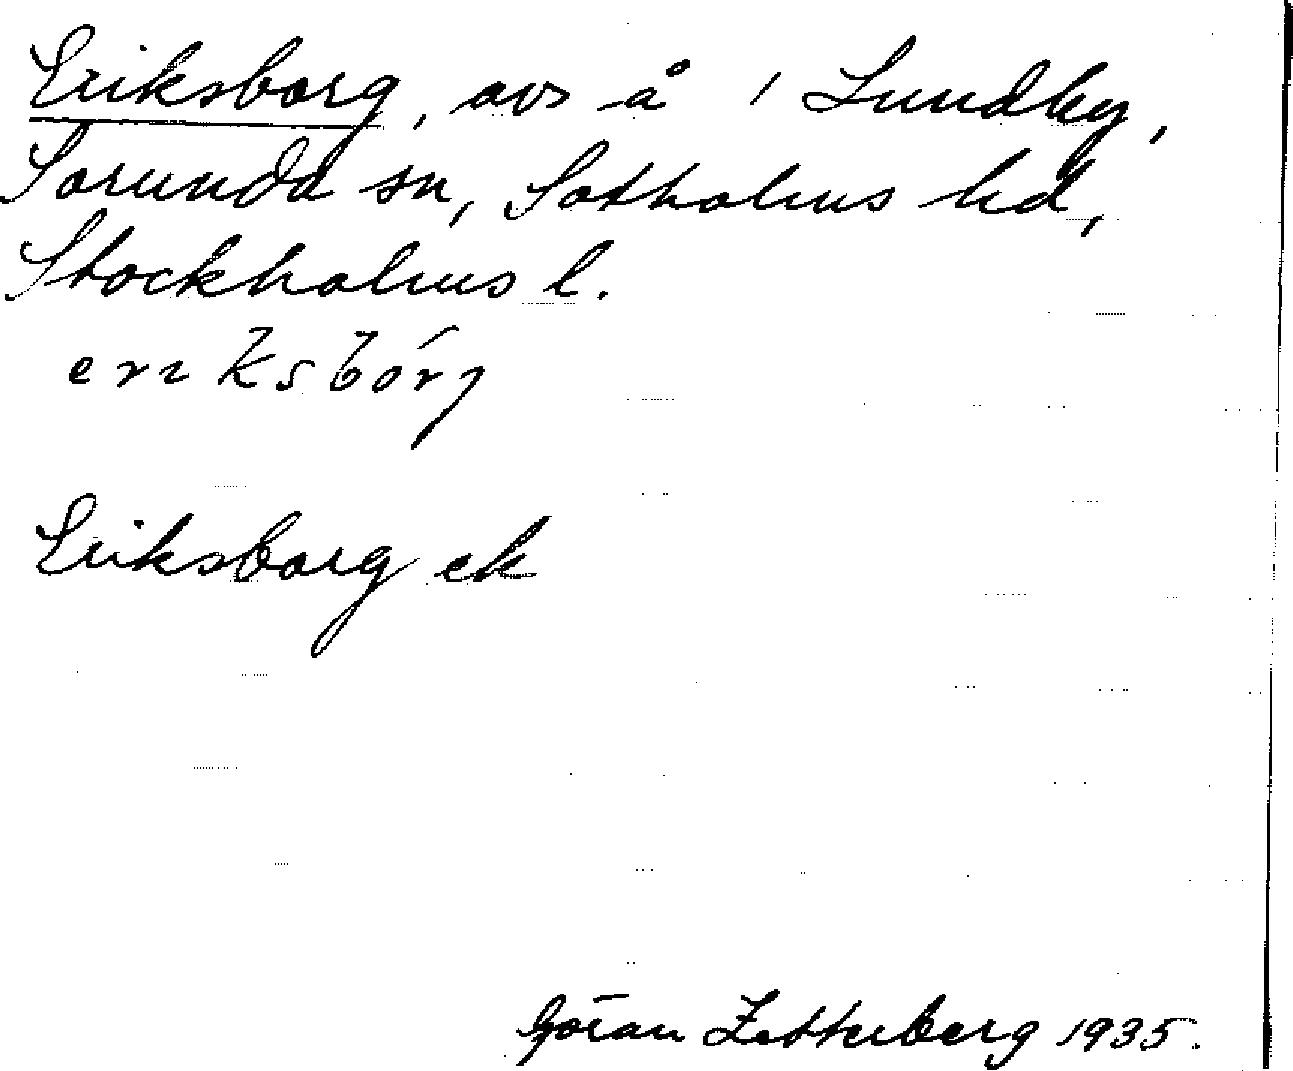 Eriksborg, avs å 1 Lundby,
Sorunda sn, Sotholms hd,
Stockholms l.
Eriksborg ek
Göran Zetterberg 1935.